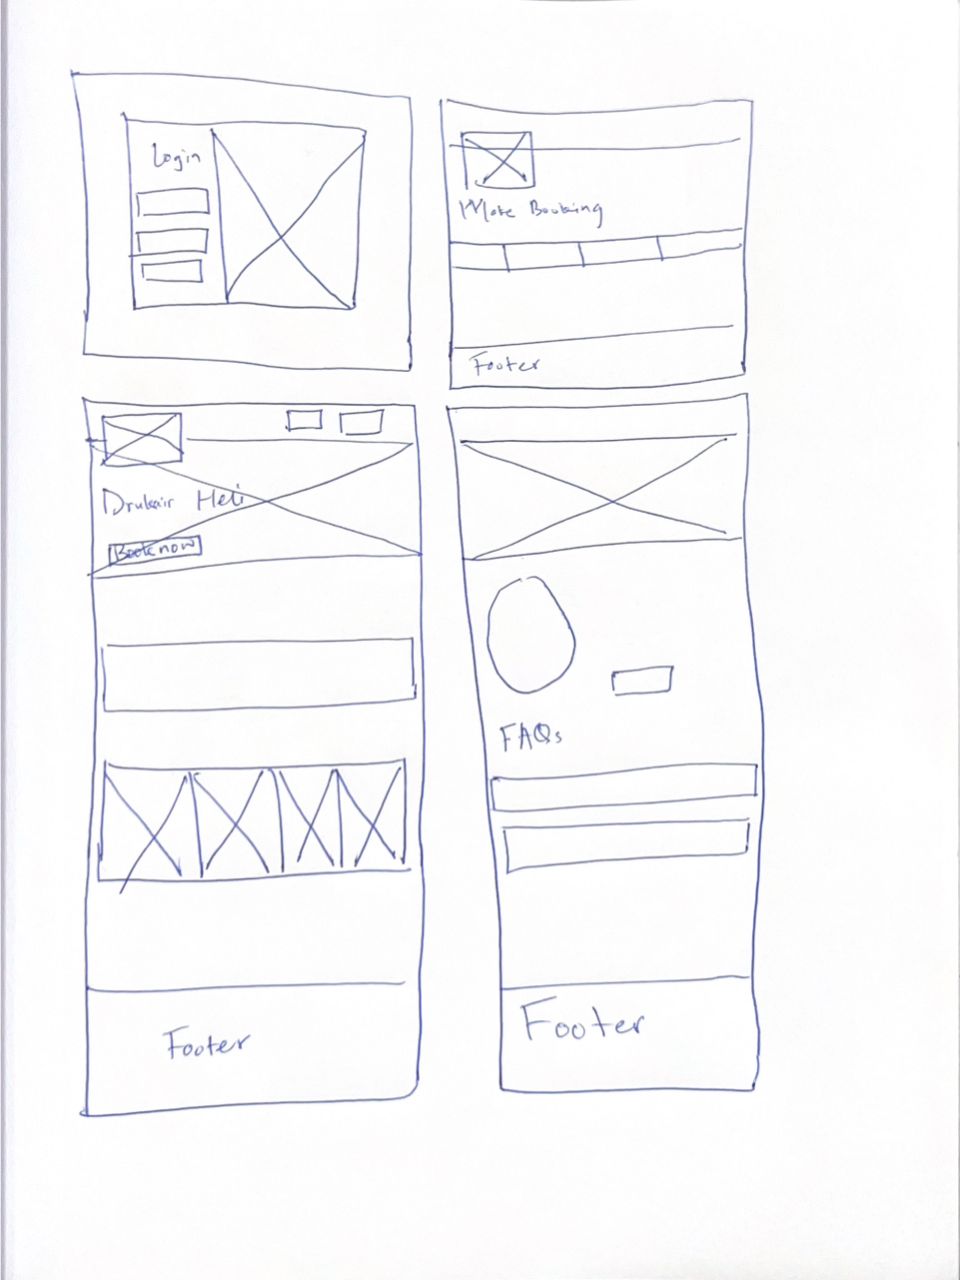 Login
Make Booking
Footer
Drukair Heli
Book now
Footer
FAQs
Footer